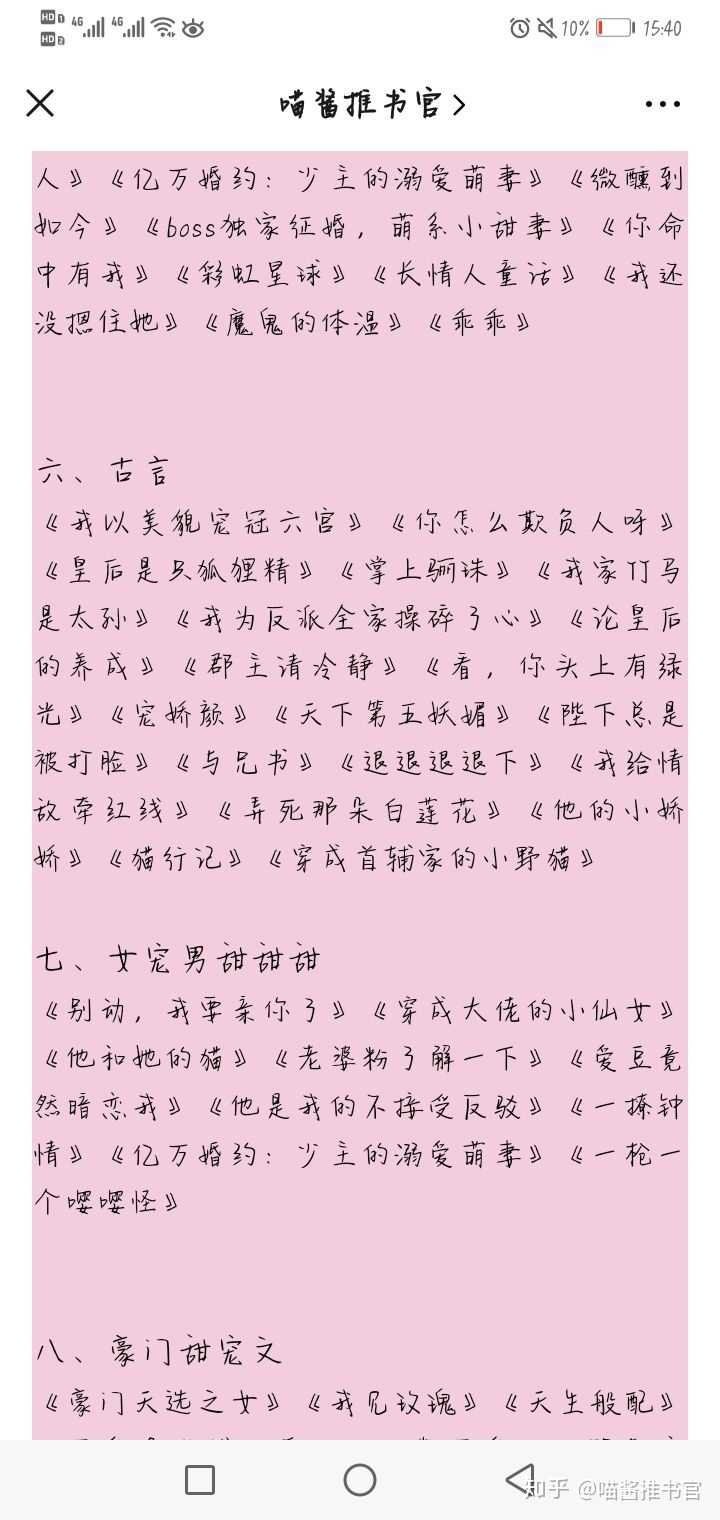 HD 1 4G 4G 10% 15:40
HD 2
喵酱推书官
人》《亿万婚约：少主的溺爱萌妻》《微醺到
如今》《boss独家征婚，萌系小甜妻》《你命
中有我》《彩虹星球》《长情人童话》《我还
没摁住她》《魔鬼的体温》《乖乖》
六、古言
《我以美貌宠冠六宫》《你怎么欺负人呀》
《皇后是只狐狸精》《掌上骊珠》《我家竹马
是太孙》《我为反派全家操碎了心》《论皇后
的养成》《郡主请冷静》《看，你头上有绿
光》《宠娇颜》《天下第五妖媚》《陛下总是
被打脸》《与兄书》《退退退退下》《我给情
敌牵红线》《弄死那朵白莲花》《他的小娇
娇》《猫行记》《穿成首辅家的小野猫》
七、女宠男甜甜甜
《别动，我要亲你了》《穿成大佬的小仙女》
《他和她的猫》《老婆粉了解一下》《爱豆竟
然暗恋我》《他是我的不接受反驳》《一撩钟
情》《亿万婚约：少主的溺爱萌妻》《一枪一
个嘤嘤怪》
八、豪门甜宠文
《豪门天选之女》《我见玫瑰》《天生般配》
知乎 @喵酱推书官